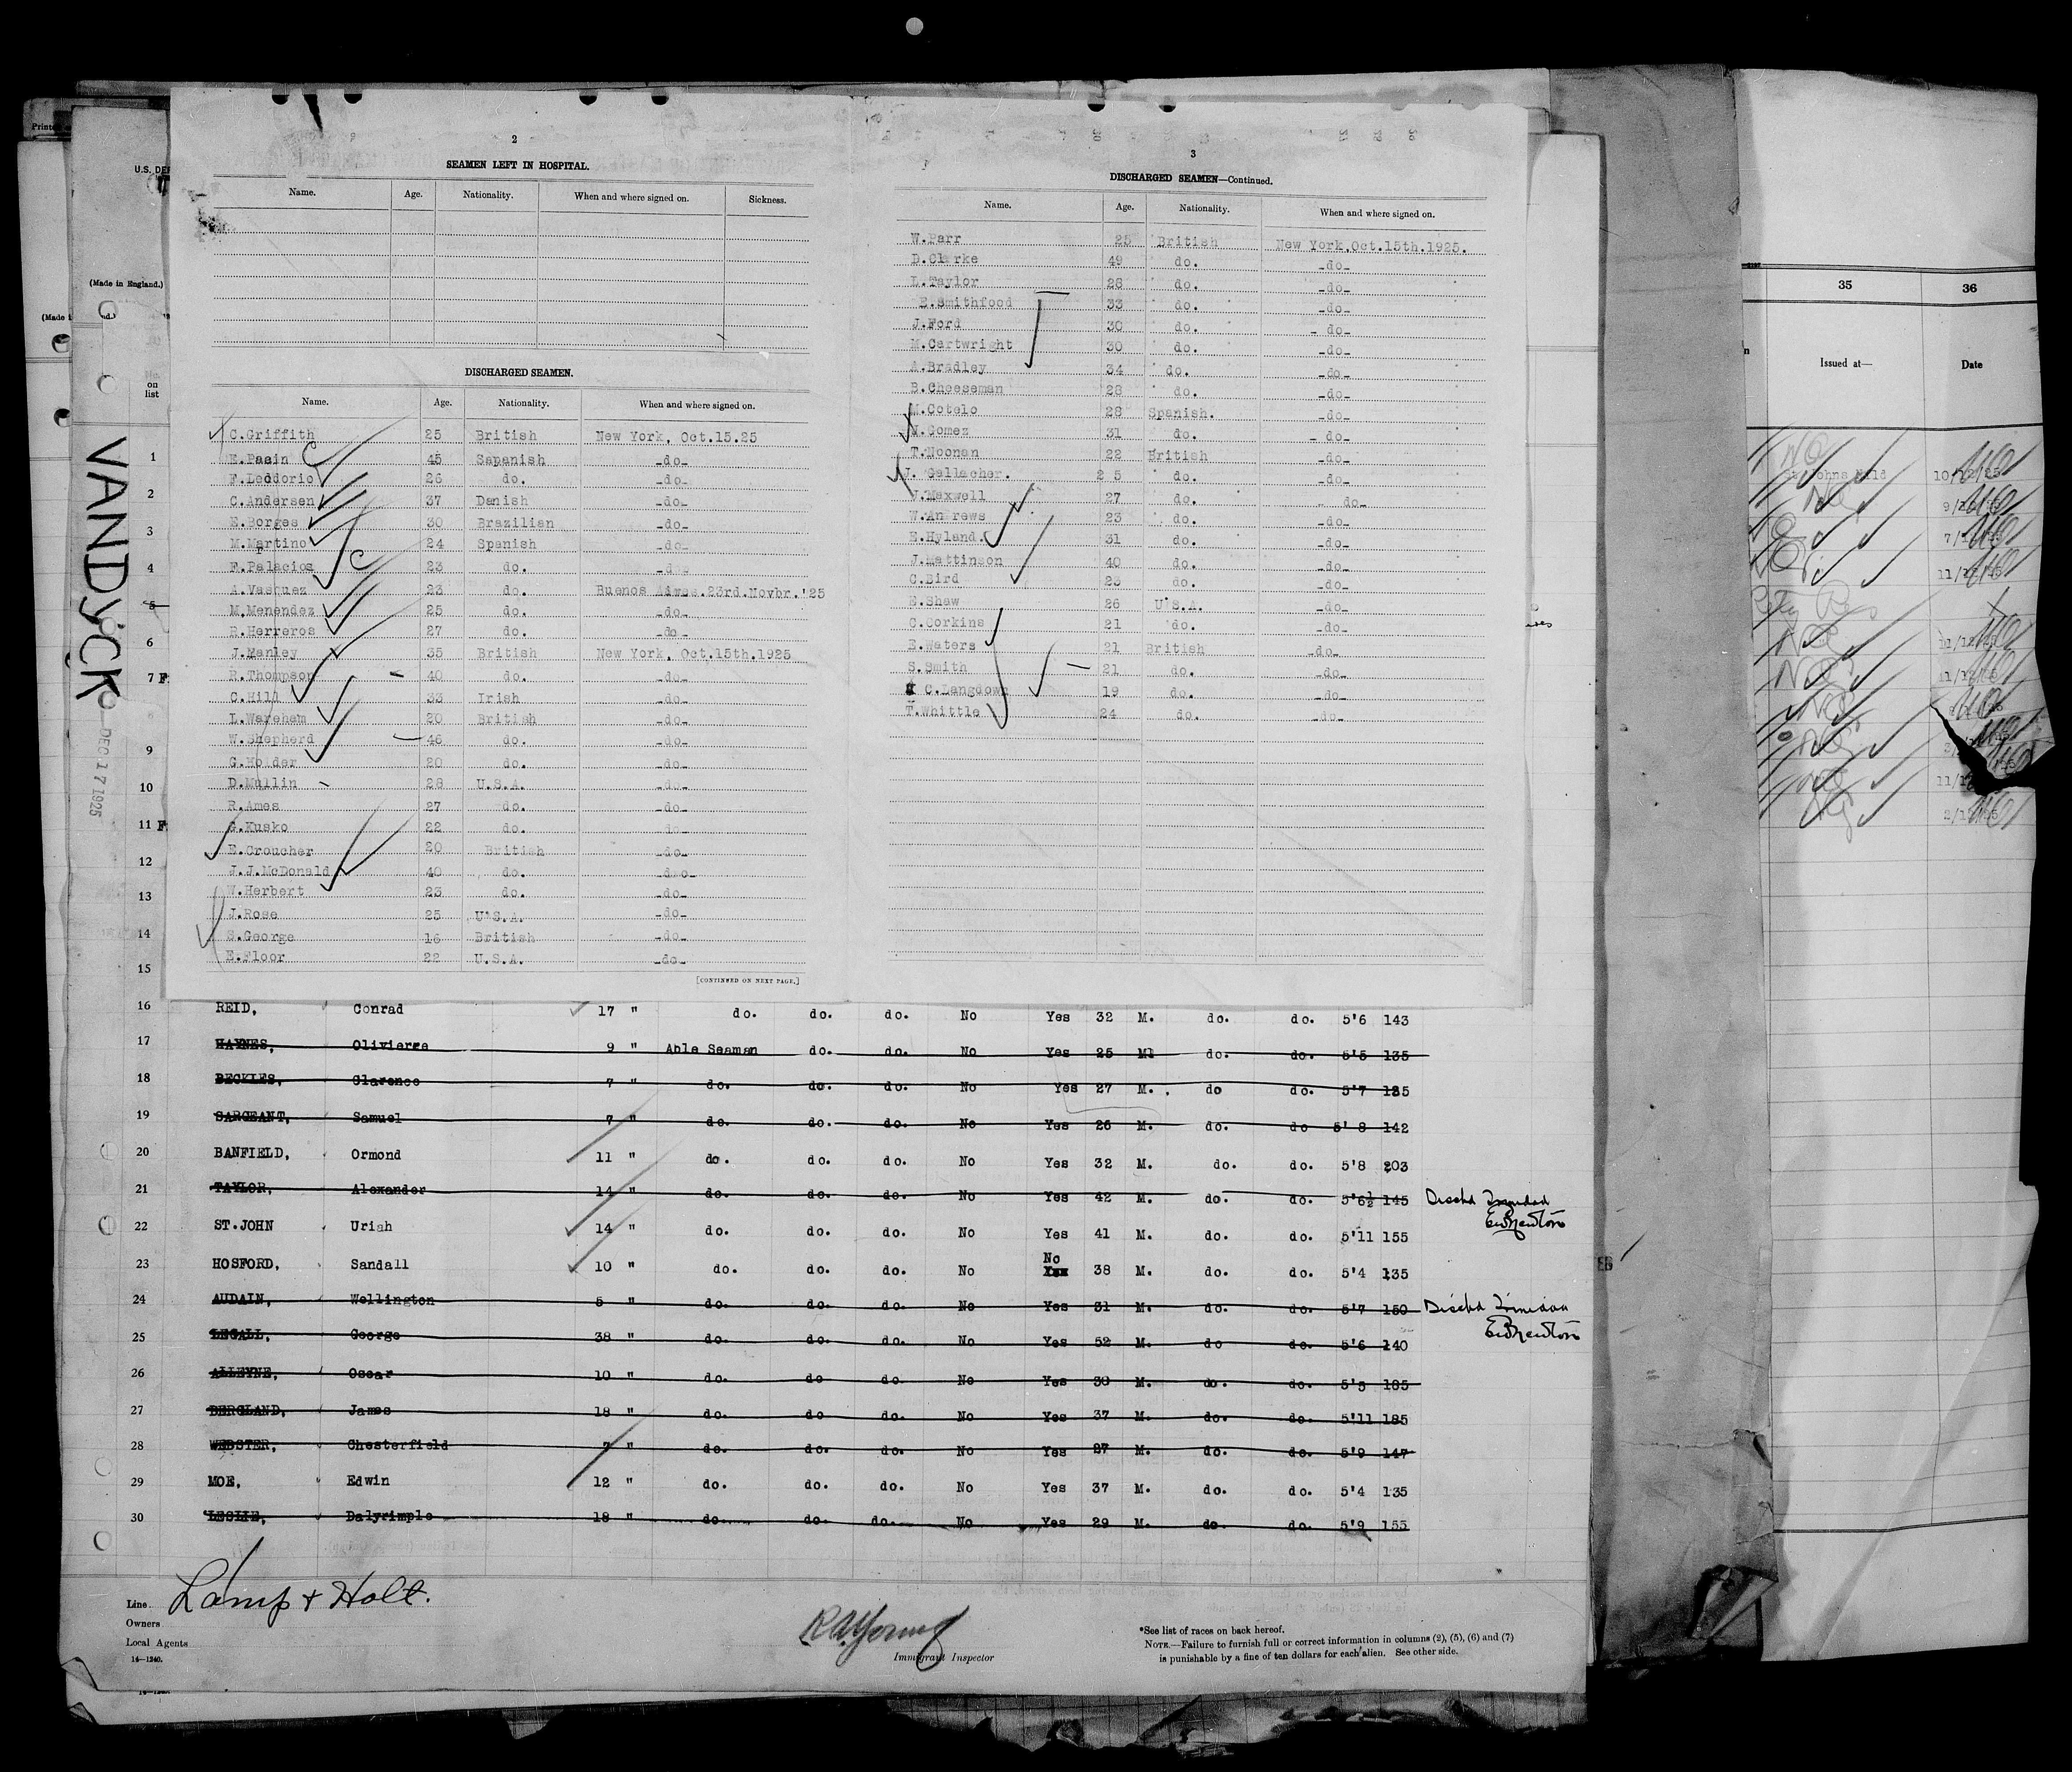 2
SEAMEN LEFT IN HOSPITAL.
Name. Age. Nationality. When and where signed on. Sickness.
DISCHARGED SEAMEN.
Name. Age. Nationality. When and where signed on.
C.Griffith 25 British New York, Oct.15.25
E.Pacin 45 Sapanish -do-
F.Leddorio 26 do. -do-
C.Andersen 37 Danish -do-
E.Borges 30 Brazilian -do-
M.Martino 24 Spanish -do-
F.Palacios 23 do. -do-
A.Vasquez 23 do. Buenos Aires.23rd.Novbr.'25
M.Menendez 25 do. -do-
R.Herreros 27 do. -do-
J.Manley 35 British New York, Oct.15th.1925
R.Thompson 40 do. -do-
C.Hill 33 Irish -do-
L.Wareham 20 British -do-
W.Shepherd 46 do. -do-
G.Holder 20 do. -do-
D.Mullin 28 U.S.A. -do-
R.Ames 27 do. -do-
G.Kusko 22 do. do
E.Croucher 20 British -do-
J.J.McDonald 40 do. -do-
W.Herbert 23 do. -do-
J.Rose 25 U.S.A. -do-
S.George 16 British -do-
E.Floor 22 U.S.A. -do-
[CONTINUED ON NEXT PAGE.]
3
DISCHARGED SEAMEN—Continued.
Name. Age. Nationality. When and where signed on.
W.Parr 25 British New York.Oct.15th.1925.
D.Clarke 49 do. -do-
L.Taylor 28 do. -do-
E.Smithfood 33 do. -do-
J.Ford 30 do. - do-
M.Cartwright 30 do. -do-
A.Bradley 34 do. -do-
B.Cheeseman 28 do. -do-
M.Cotelo 28 Spanish. -do-
M.Gomez 31 do. - do-
T.Noonan 22 British -do-
J. Gallacher. 2 5 do. -do-
J.Maxwell 27 do. - do-
W.An rews 23 do. -do-
E.Hyland. 31 do. -do-
J.Mattinson 40 do. -do-
C.Bird 23 do. -do-
E.Shaw 26 U.S.A. -do-
C.Corkins 21 do. -do-
E.Waters 21 British -do-
S.Smith 21 do. -do-
C.Langdown 19 do. -do-
T.Whittle 24 do. -do-
U.S. DEP
(Made in England.)
No. on list
VANDYCK
DEC 17 1925
1
2
3
4
5
6
7 F
9
10
11 F
12
13
14
15
35 36
Issued at— Date
St Johns Nfld 10/12/25
16 REID, Conrad 17 " do. do. do. No Yes 32 M. do. do. 5'6 143
17 HAYNES, Olivierre 9 " Able Seaman do. do. No Yes 25 M. do. do. 5'5 135
18 BECKLES, Clarence 7 " do. do. do. No Yes 27 M. do do. 5'7 135
19 SARGEANT, Samuel 7 " do. do. do. No Yes 26 M. do. do 5' 8 142
20 BANFIELD, Ormond 11 " do. do. do. No Yes 32 M. do. do. 5'8 203
21 TAYLOR, Alexander 14 " do. do. do. No Yes 42 M. do. do. 5'6½ 145 Dischd Trinidad
22 ST.JOHN Uriah 14 " do. do. do. No Yes 41 M. do. do. 5'11 155
23 HOSFORD, Sandall 10 " do. do. do. No No Yes 38 M. do. do. 5'4 135
24 AUDAIN, Wellington 5 " do. do. do. No Yes 31 M. do. do. 5'7 150 Dischd Trinidad
25 LEGALL, George 38 " do. do. do. No Yes 52 M. do do. 5'6 140
26 ALLEYNE, Oscar 10 " do. do do. No Yes 30 M. do. do. 5'5 185
27 BERGLAND, James 18 " do. do do. No Yes 37 M. do. do. 5'11 185
28 WEBSTER, Chesterfield 7 " do. do. do. No Yes 27 M. do. do. 5'9 147
29 MOE, Edwin 12 " do. do. do. No Yes 37 M. do. do. 5'4 135
30 LESLIE, Dalyrimple 18 " do. do. do. No Yes 29 M. do. do. 5'9 155
Line Lamp & Holt.
Owners
Local Agents
14—1240.
R A Young
Immigrant Inspector
*See list of races on back hereof.
NOTE.—Failure to furnish full or correct information in columns (2), (5), (6) and (7)
is punishable by a fine of ten dollars for each alien. See other side.